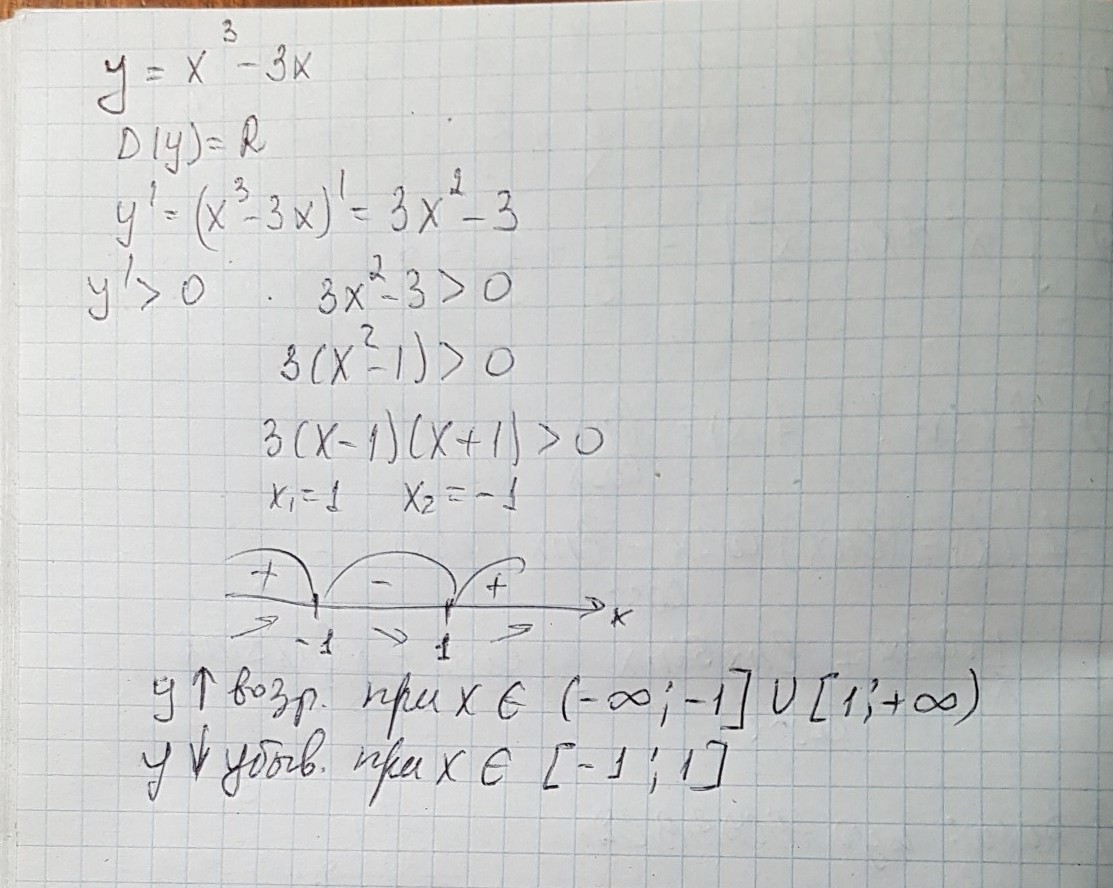 y = x³ - 3x
D(y) = R
y' = (x³ - 3x)' = 3x² - 3
y' > 0 3x² - 3 > 0
3(x² - 1) > 0
3(x - 1)(x + 1) > 0
x₁ = 1 x₂ = -1
+ - +
-1 1 x
y ↑ возр. при x ∈ (-∞; -1] ∪ [1; +∞)
y ↓ убыв. при x ∈ [-1; 1]